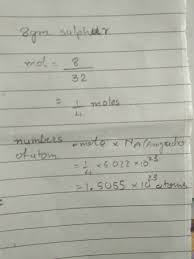 8gm sulphur
mol = 8
32
= 1
4 moles
numbers = mole × NA (
of atom = 1
4 × 6.022 × 10²³
= 1.5055 × 10²³
atoms